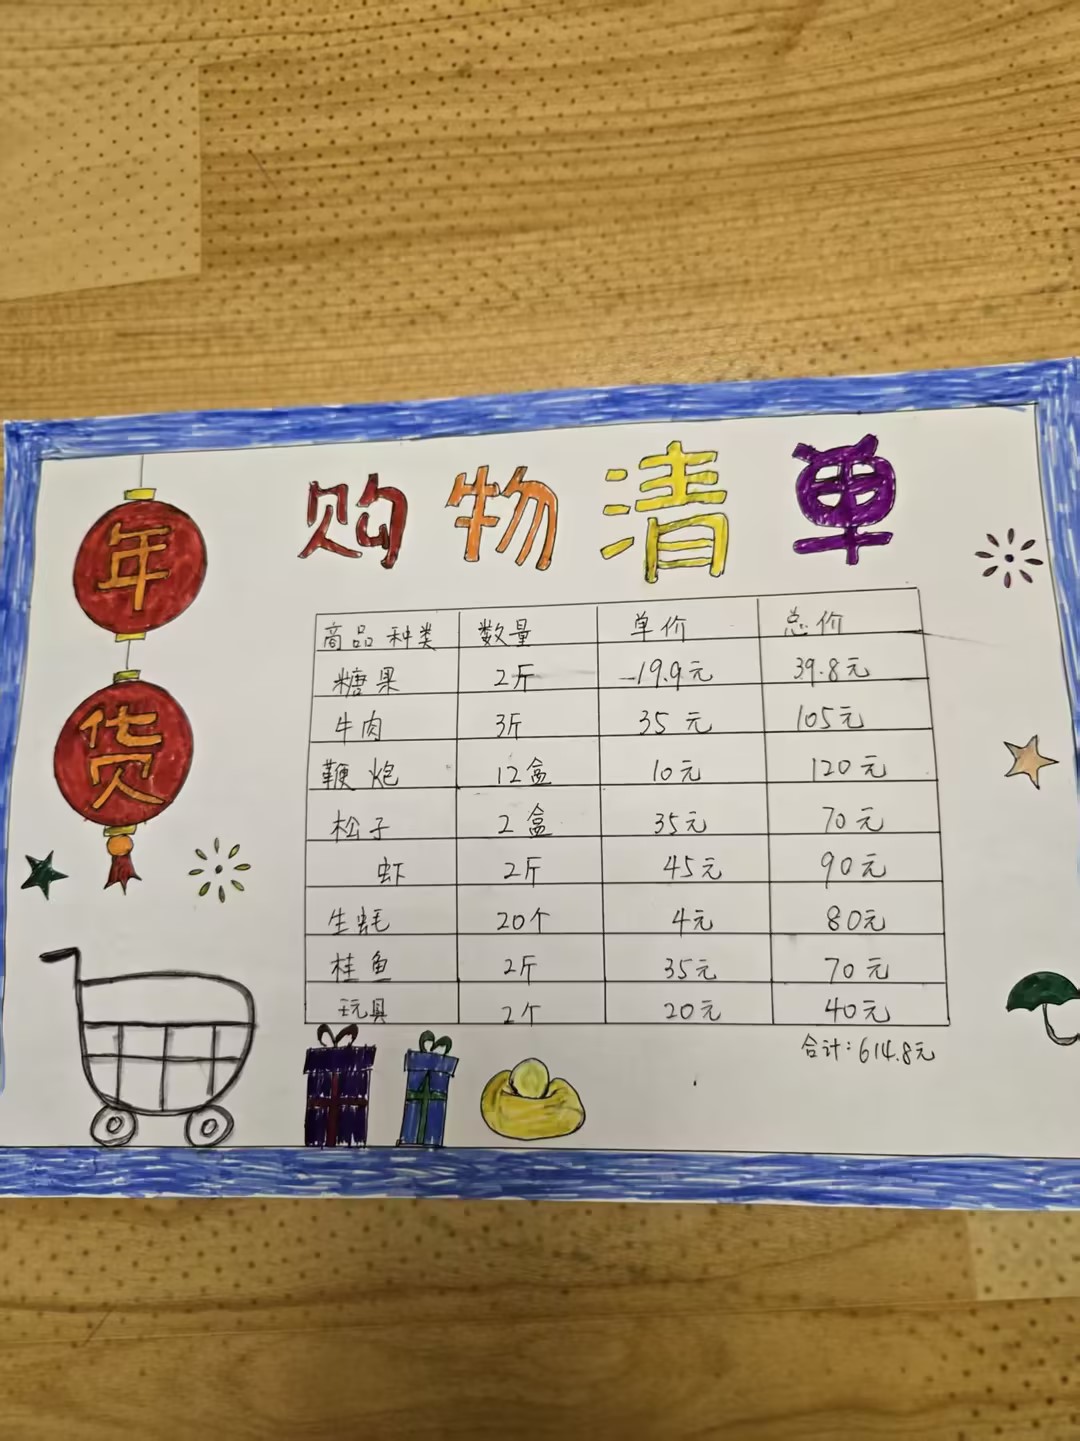 年货
购物清单
商品种类 数量 单价 总价
糖果 2斤 19.9元 39.8元
牛肉 3斤 35元 105元
鞭炮 12盒 10元 120元
松子 2盒 35元 70元
虾 2斤 45元 90元
生蚝 20个 4元 80元
桂鱼 2斤 35元 70元
玩具 2个 20元 40元
合计:614.8元